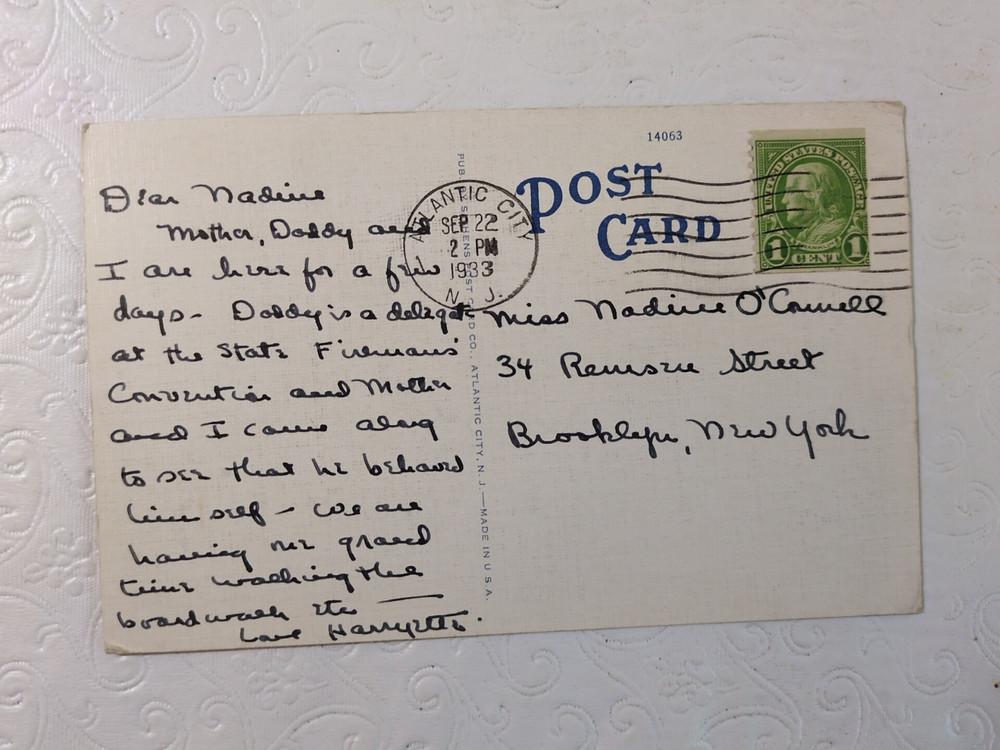 14063
POST
CARD
UNITED STATES POSTAGE
FRANKLIN
1 CENT 1
ATLANTIC CITY
SEP 22
2 PM
1933
N. J.
Dear Nadine
Mother, Daddy and
I are here for a few
days - Daddy is a delegate
at the State Firemans'
Convention and Mother
and I came along
to see that he behaved
himself - we are
having one grand
time walking the
boardwalk etc —
Love Harryette.
PUB. POST CARD CO., ATLANTIC CITY, N. J.—MADE IN U S A.
Miss Nadine O'Connell
34 Remsen Street
Brooklyn, New York